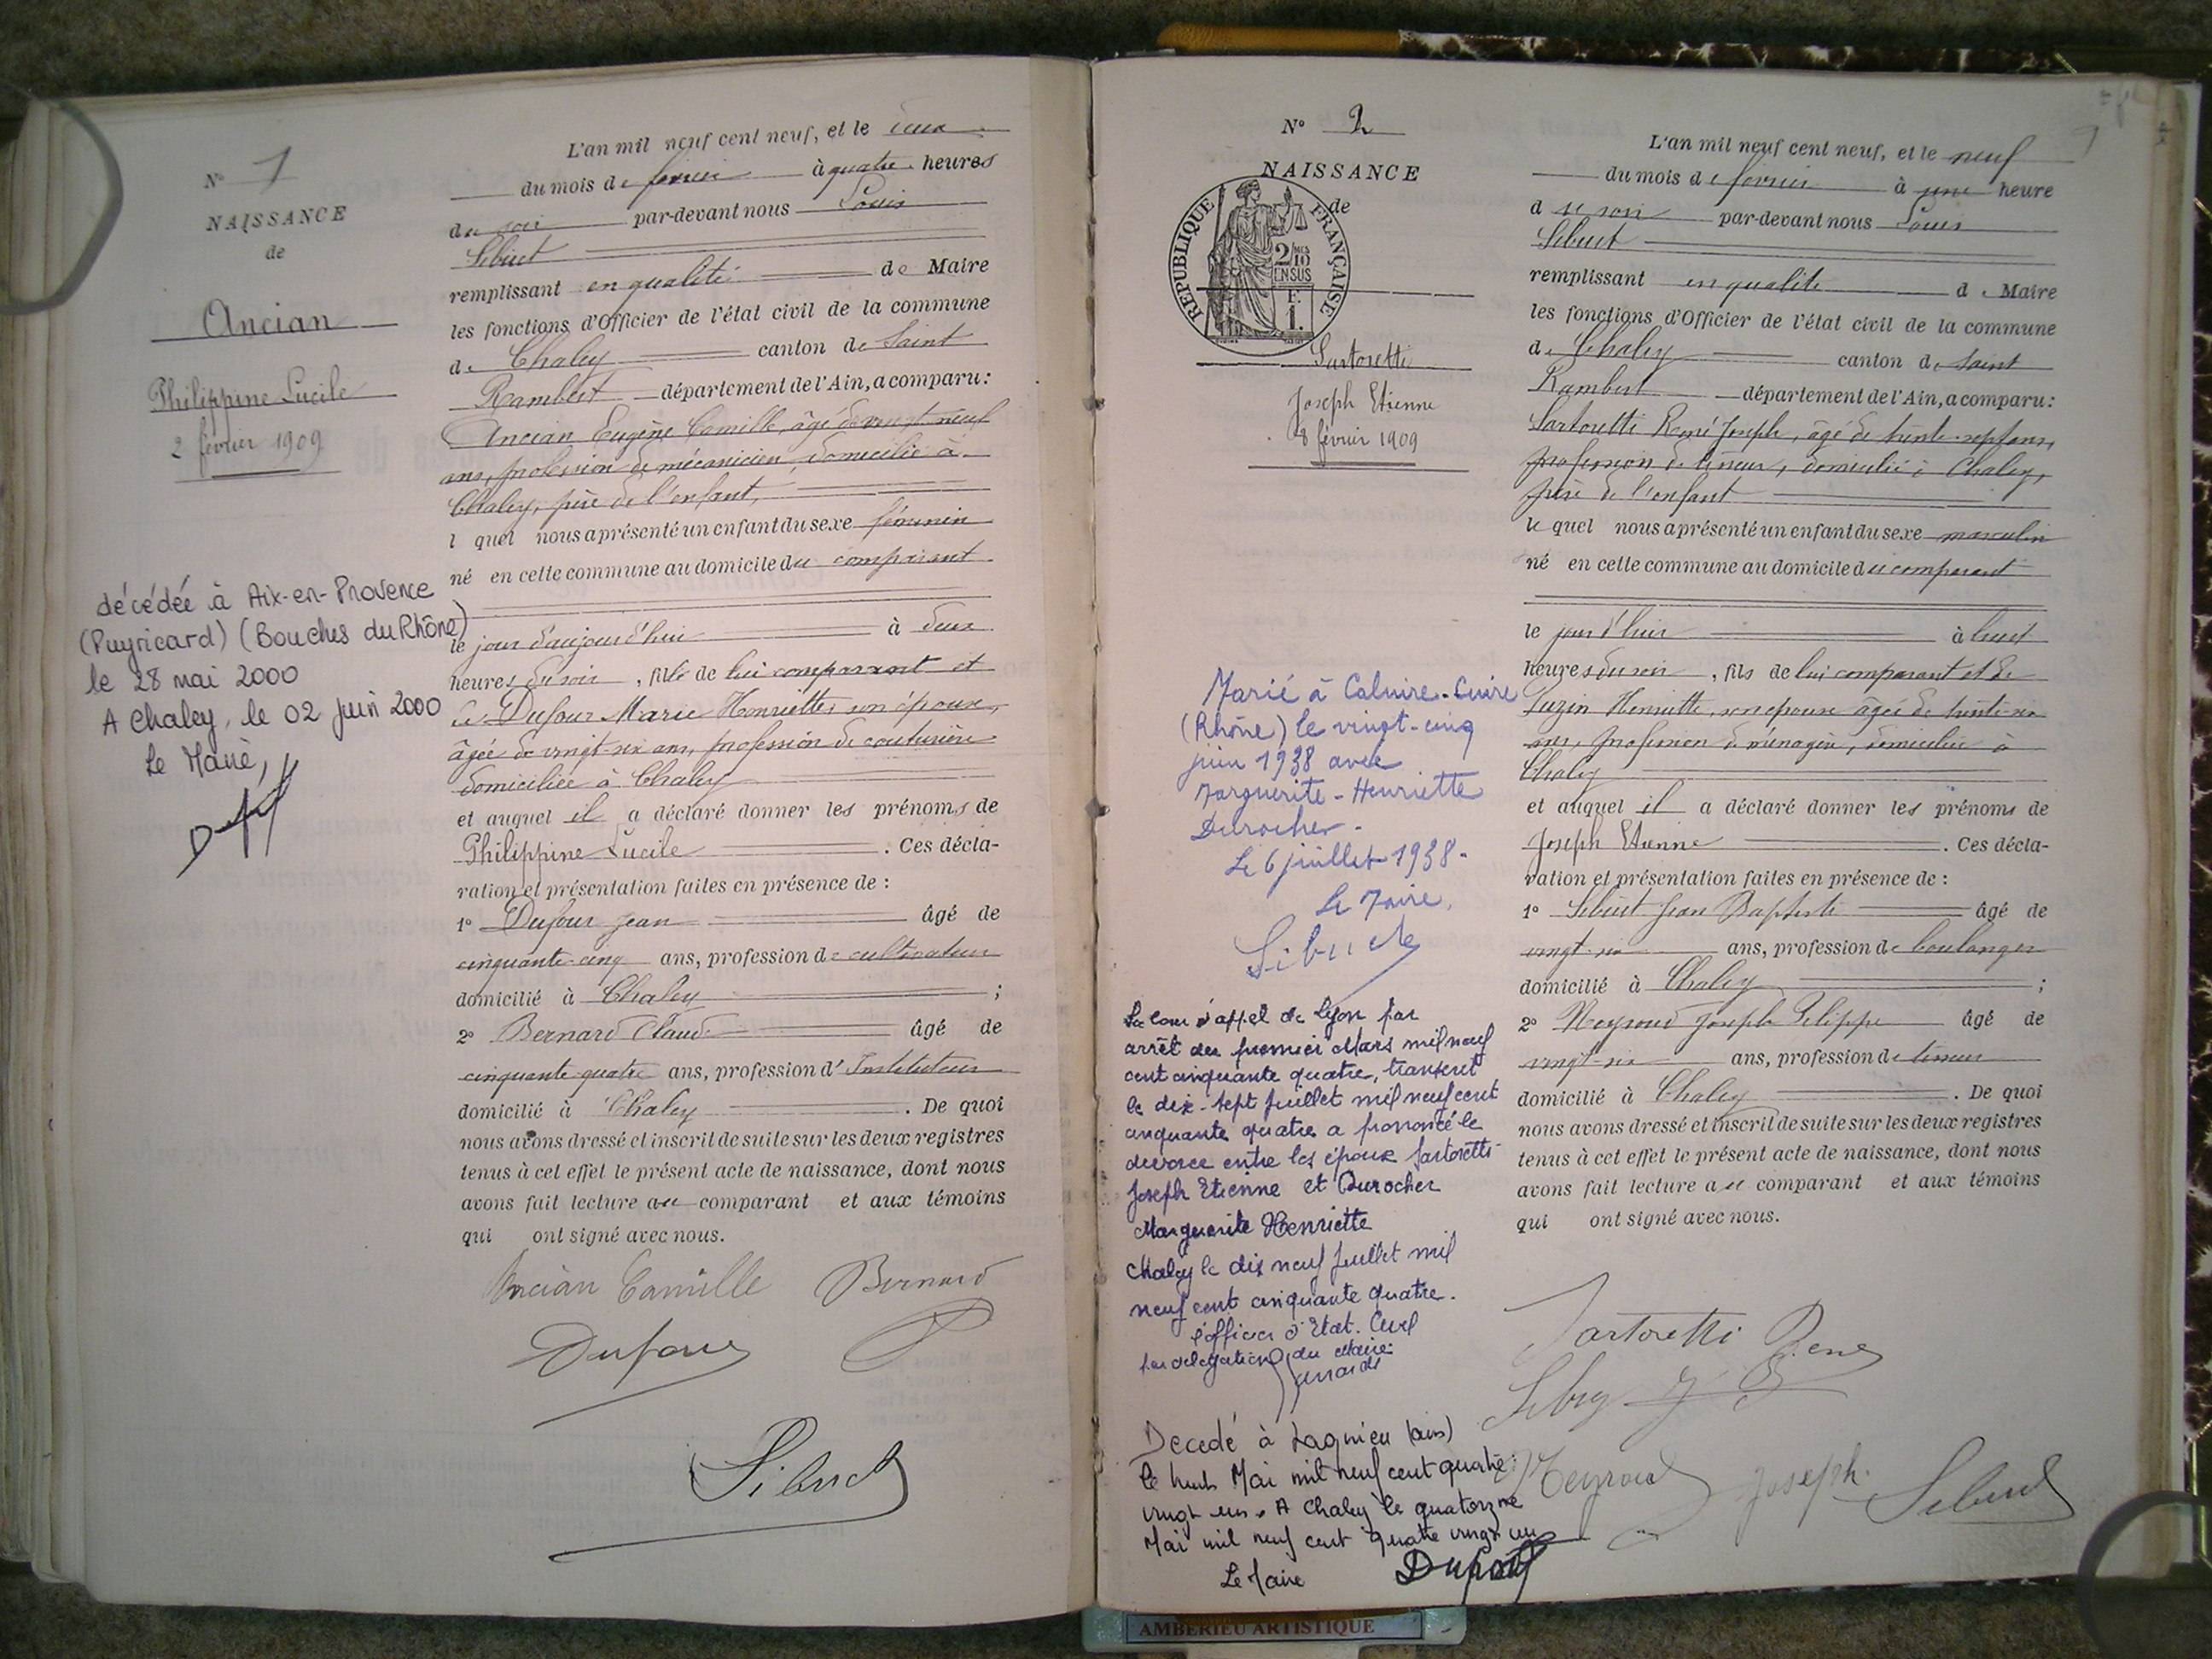 N° 1
NAISSANCE
de
Ancian
Philippine Lucile
2 février 1909
décédée à Aix-en-Provence
(Puyricard) (Bouches du Rhône)
le 28 mai 2000
A Chaley, le 02 juin 2000
Le Maire,
L'an mil neuf cent neuf, et le deux
du mois de février à quatre heures
du soir par-devant nous Louis
Sibuet
remplissant en qualité de Maire
les fonctions d'Officier de l'état civil de la commune
de Chaley canton de Saint
Rambert département de l'Ain, a comparu:
Ancian Eugène Camille, âgé de vingt-neuf
ans, profession de mécanicien, domicilié à
Chaley, père de l'enfant,
l quel nous a présenté un enfant du sexe féminin
né en cette commune au domicile du comparant
le jour d'aujourd'hui à deux
heures du soir, fille de lui comparant et
de Dufour Marie Henriette, son épouse,
âgée de vingt-six ans, profession de couturière
domiciliée à Chaley
et auquel il a déclaré donner les prénoms de
Philippine Lucile. Ces décla-
ration et présentation faites en présence de :
1° Dufour Jean âgé de
cinquante-cinq ans, profession de cultivateur
domicilié à Chaley ;
2° Bernard Claude âgé de
cinquante-quatre ans, profession d'Instituteur
domicilié à Chaley. De quoi
nous avons dressé et inscrit de suite sur les deux registres
tenus à cet effet le présent acte de naissance, dont nous
avons fait lecture au comparant et aux témoins
qui ont signé avec nous.
Ancian Camille Bernard
Dufour
Sibuet
N° 2
NAISSANCE
de
RÉPUBLIQUE FRANÇAISE
2/10 MES
EN SUS
F.
1.
Sartoretti
Joseph Etienne
8 février 1909
Marié à Caluire-Cuire
(Rhône) le vingt-cinq
juin 1938 avec
Marguerite-Henriette
Durocher.
Le 6 juillet 1938.
Le Maire,
Sibuet
La cour d'appel de Lyon par
arrêt du premier Mars mil neuf
cent cinquante quatre, transcrit
le dix-sept juillet mil neuf cent
cinquante quatre a prononcé le
divorce entre les époux Sartoretti
Joseph Etienne et Durocher
Marguerite Henriette
Chaley le dix neuf juillet mil
neuf cent cinquante quatre.
L'officier d'Etat. Civil
par délégation du Maire:
Décédé à Lagnieu (ain)
le huit Mai mil neuf cent quatre
vingt un. A Chaley le quatorze
Mai mil neuf cent quatre vingt un
Le Maire
L'an mil neuf cent neuf, et le neuf
du mois de février à une heure
du soir par-devant nous Louis
Sibuet
remplissant en qualité de Maire
les fonctions d'Officier de l'état civil de la commune
de Chaley canton de Saint
Rambert département de l'Ain, a comparu:
Sartoretti René Joseph, âgé de trente-sept ans,
profession de tineur, domicilié à Chaley,
père de l'enfant
le quel nous a présenté un enfant du sexe masculin
né en cette commune au domicile du comparant
le jour d'hier à huit
heures du soir, fils de lui comparant et de
Juzin Henriette, son épouse âgée de trente-six
ans, profession de ménagère, domiciliée à
Chaley
et auquel il a déclaré donner les prénoms de
Joseph Etienne. Ces décla-
ration et présentation faites en présence de :
1° Sibuet Jean Baptiste âgé de
vingt-six ans, profession de boulanger
domicilié à Chaley ;
2° Meyroud Joseph Philippe âgé de
vingt-six ans, profession de tineur
domicilié à Chaley. De quoi
nous avons dressé et inscrit de suite sur les deux registres
tenus à cet effet le présent acte de naissance, dont nous
avons fait lecture au comparant et aux témoins
qui ont signé avec nous.
Sartoretti René
Meyroud Joseph Sibuet
AMBERIEU ARTISTIQUE